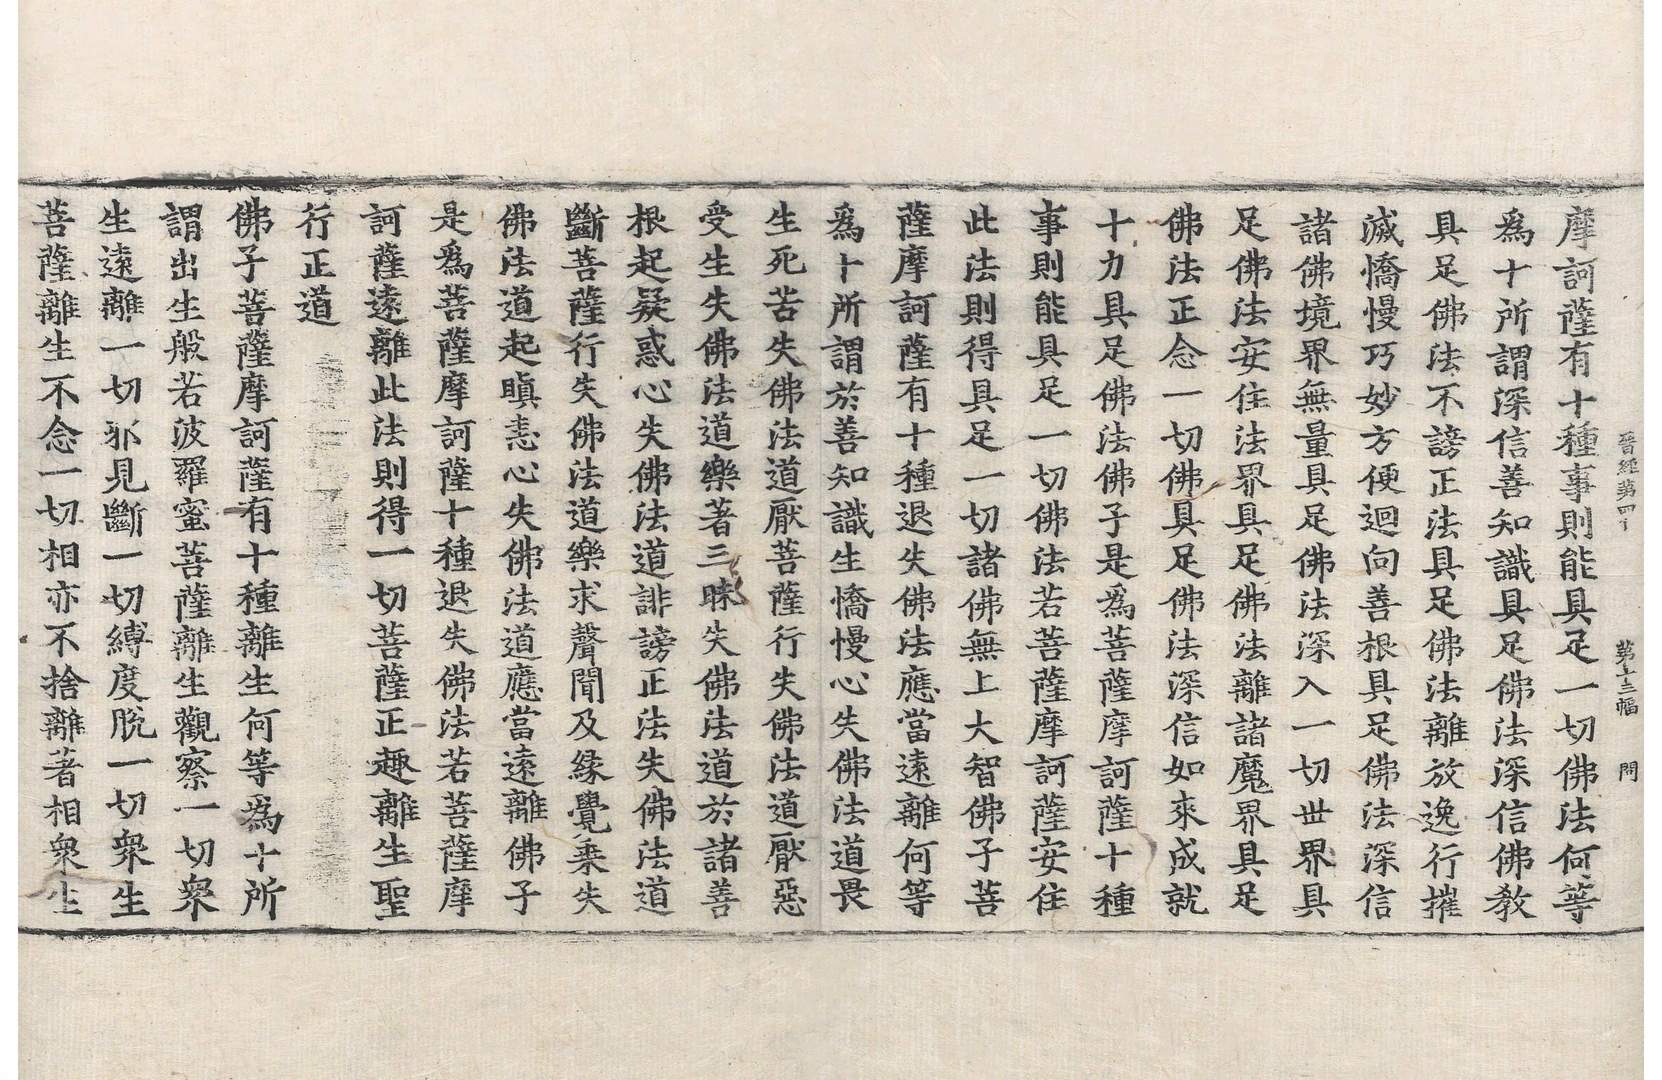 晉經第四十 第十三幅 問
摩訶薩有十種事則能具足一切佛法何等
爲十所謂深信善知識具足佛法深信佛教
具足佛法不謗正法具足佛法離放逸行摧
滅憍慢巧妙方便迴向善根具足佛法深信
諸佛境界無量具足佛法深入一切世界具
足佛法安住法界具足佛法離諸魔界具足
佛法正念一切佛具足佛法深信如來成就
十力具足佛法佛子是爲菩薩摩訶薩十種
事則能具足一切佛法若菩薩摩訶薩安住
此法則得具足一切諸佛無上大智佛子菩
薩摩訶薩有十種退失佛法應當遠離何等
爲十所謂於善知識生憍慢心失佛法道畏
生死苦失佛法道厭菩薩行失佛法道厭惡
受生失佛法道樂著三昧失佛法道於諸善
根起疑惑心失佛法道誹謗正法失佛法道
斷菩薩行失佛法道樂求聲聞及緣覺乘失
佛法道起瞋恚心失佛法道應當遠離佛子
是爲菩薩摩訶薩十種退失佛法若菩薩摩
訶薩遠離此法則得一切菩薩正趣離生聖
行正道
佛子菩薩摩訶薩有十種離生何等爲十所
謂出生般若波羅蜜菩薩離生觀察一切衆
生遠離一切邪見斷一切縛度脫一切衆生
菩薩離生不念一切相亦不捨離著相衆生